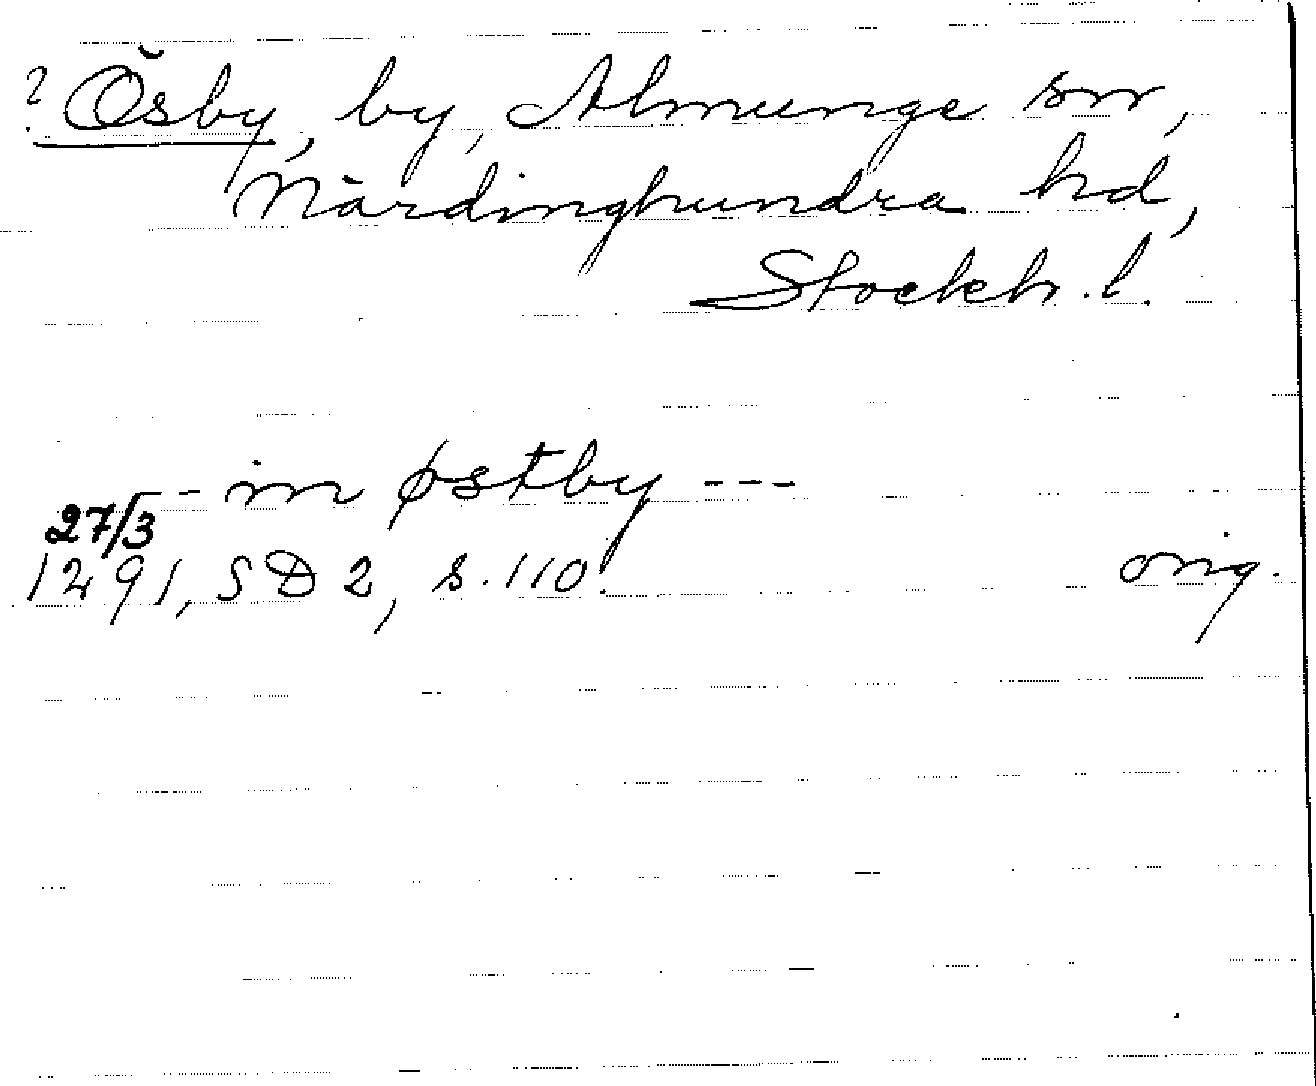 ? Ösby, by, Almunge sn,
Närdinghundra hd,
Stockh. l.
--- in østby ---
27/3
1291, SD 2, s. 110. orig.